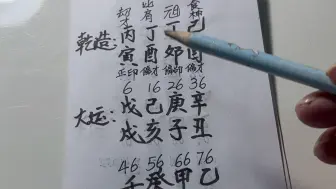 劫才 比肩 元 食神
乾造: 丙 丁 丁 己
寅 酉 卯 酉
正印 偏才 偏印 偏才
6 16 26 36
大运: 戊 己 庚 辛
戌 亥 子 丑
46 56 66 76
壬 癸 甲 乙